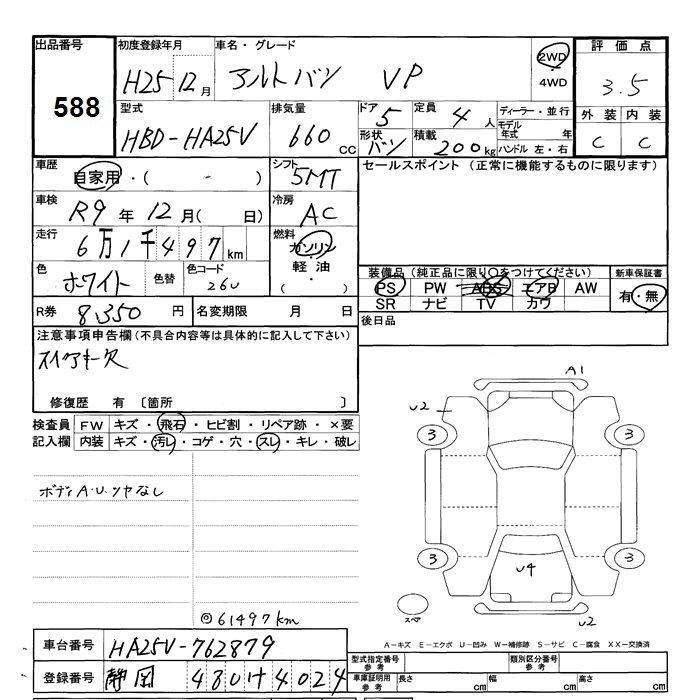 出品番号 初度登録年月 車名・グレード 評価点
588 H25 12月 アルトバン VP 2WD 4WD 3.5
型式 排気量 ドア 5 定員 4人 ディーラー・並行 外装 内装
HBD-HA25V 660cc 形状 バン 積載 200kg モデル年式 年 ハンドル 左・右 C C
車歴 自家用・( - ) シフト 5MT セールスポイント (正常に機能するものに限ります)
車検 R9年 12月( 日) 冷房 AC
走行 6万1千497km 燃料 ガソリン
軽油・( )
色 ホワイト 色替 色コード 26U
装備品 (純正品に限り○をつけてください) 新車保証書
PS PW ABS エアB AW 有・無
SR ナビ TV カワ
R券 8,350円 名変期限 月 日 後日品
注意事項申告欄(不具合内容等は具体的に記入して下さい)
スペアキー欠
修復歴 有 〔箇所 〕
検査員記入欄 FW キズ・飛石・ヒビ割・リペア跡・×要
内装 キズ・汚レ・コゲ・穴・スレ・キレ・破レ
ボディA.U.ツヤなし
A1
U2
3 3
3 3
U4
スペア
U2
◎61497km
A-キズ E-エクボ U-凹み W-補修跡 S-サビ C-腐食 XX-交換済
車台番号 HA25V-762879
型式指定番号 参考 類別区分番号 参考
登録番号 静岡 480 け 4024
車庫証明用 参考 長さ cm 幅 cm 高さ cm